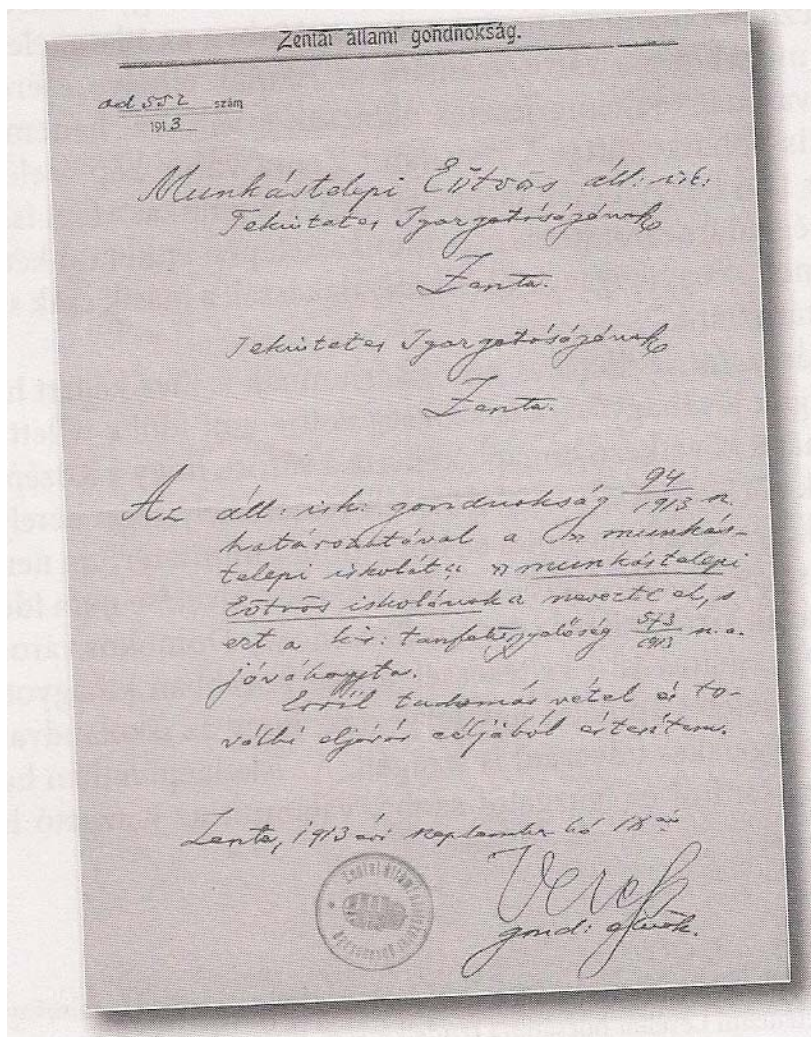 Zentai állami gondnokság.
ad 552 szám
1913
Munkástelepi Eötvös áll: isk:
Tekintetes Igazgatóságának
Zenta.
Tekintetes Igazgatóságának
Zenta.
Az áll: isk: gondnokság 94/1913 n.
határozatával a „munkás-
telepi iskolát” „munkástelepi
Eötvös iskolának” nevezte el, s
ezt a kir: tanfelügyelőség 573/1913 n. a.
jóváhagyta.
Erről tudomás vétel és to-
vábbi eljárás céljából értesítem.
Zenta, 1913 évi september hó 18 án
gond: elnök.
Zentai állami